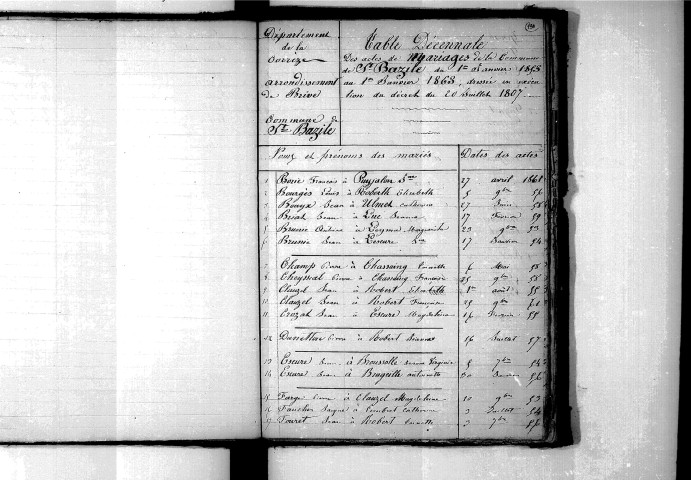 Département
de la
Corrèze
arrondissement
de Brive
Commune de
St Bazile
Table Décennale
Des actes de Mariages de la Commune
de St Bazile du 1er Janvier 1853
au 1er Janvier 1863, dressée en exécu
tion du décret du 20 Juillet 1807
Noms et prénoms des mariés Dates des actes
1 Borie François à Puyjalon 27 avril 1861
2 Bourgès Louis à Roberth Elisabeth 5 9bre 56
3 Bouyx Jean à Ulmet Catherine 27 58
4 Jean à Jeanne 17 Février 59
5 Brunie Antoine à Marguerite 23 9bre 53
6 Brunie Jean à Lescure 17 Janvier 54
7 Champ Pierre à Chassaing 6 Mai 58
8 Cheyssal Pierre à Chassaing Françoise 25 9bre 55
9 Clauzel Jean à Robert Elisabeth 1er août 55
10 Clauzel Jean à Robert Françoise 25 9bre 61
11 Crozat Jean à Escure Magdeleine 14 Février 55
12 Pierre à Robert Jeanne 16 Juillet 57
13 Escure à Broussolle Virginie 5 7bre 54
14 Escure Jean à Antoinette 30 Janvier 56
15 Farge Pierre à Clauzel Magdeleine 10 9bre 53
16 à Catherine 3 Juillet 54
17 Jean à Robert 2 7bre